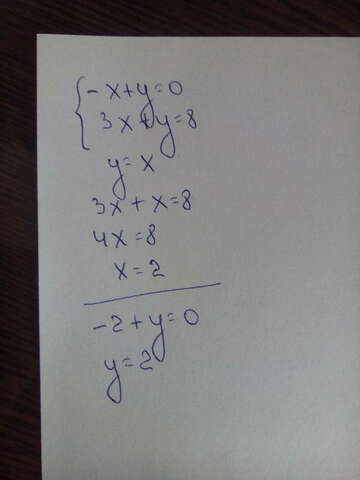 -x+y=0
3x+y=8
y=x
3x+x=8
4x=8
x=2
-2+y=0
y=2